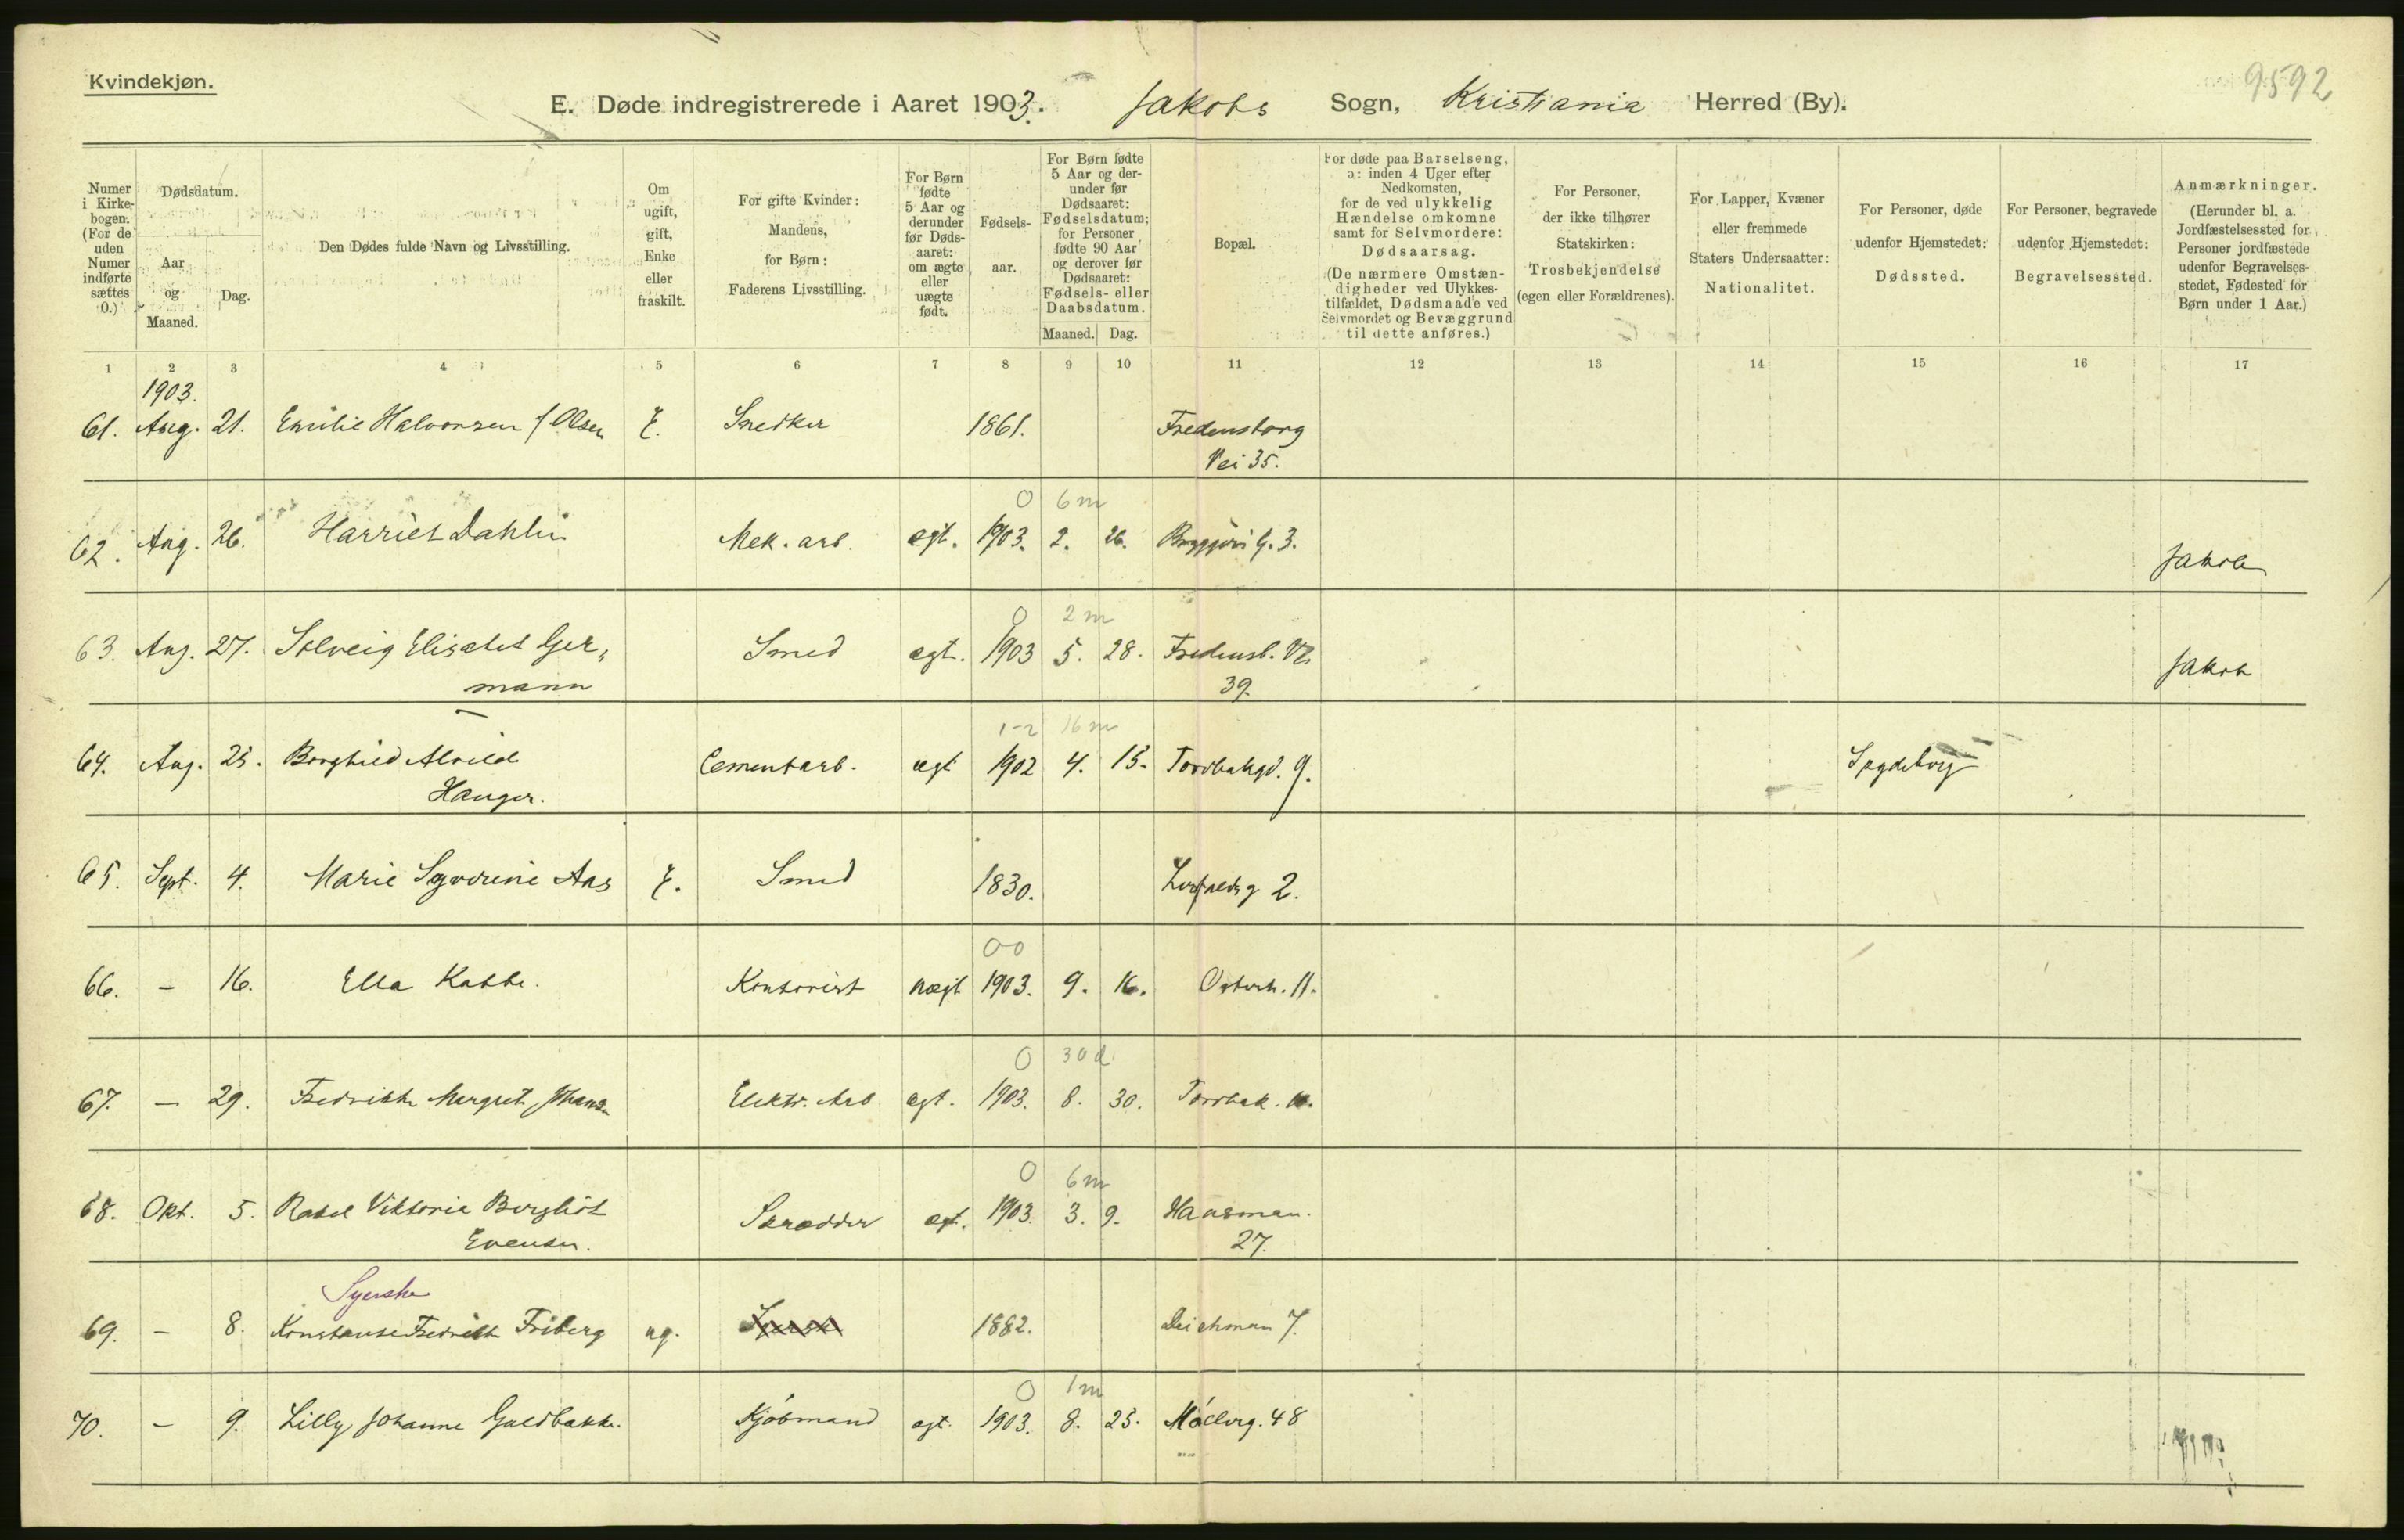 Kvindekjøn.
9592
E. Døde indregistrerede i Aaret 1903. Jakobs Sogn, Kristiania Herred (By).
Numer i Kirke-bogen. (For de uden Numer indførte sættes 0.)
Dødsdatum.
Aar og Maaned.
Dag.
Den Dødes fulde Navn og Livsstilling.
Om ugift, gift, Enke eller fraskilt.
For gifte Kvinder: Mandens, for Børn: Faderens Livsstilling.
For Børn fødte 5 Aar og derunder før Døds-aaret: om ægte eller uægte født.
Fødsels-aar.
For Børn fødte 5 Aar og der-under før Dødsaaret: Fødselsdatum; for Personer fødte 90 Aar og derover før Dødsaaret: Fødsels- eller Daabsdatum.
Maaned. Dag.
Bopæl.
For døde paa Barselseng, ɔ: inden 4 Uger efter Nedkomsten, for de ved ulykkelig Hændelse omkomne samt for Selvmordere: Dødsaarsag. (De nærmere Omstæn-digheder ved Ulykkes-tilfældet, Dødsmaade ved Selvmordet og Bevæggrund til dette anføres.)
For Personer, der ikke tilhører Statskirken: Trosbekjendelse (egen eller Forældrenes).
For Lapper, Kvæner eller fremmede Staters Undersaatter: Nationalitet.
For Personer, døde udenfor Hjemstedet: Dødssted.
For Personer, begravede udenfor Hjemstedet: Begravelsessted.
Anmærkninger. (Herunder bl. a. Jordfæstelsessted for Personer jordfæstede udenfor Begravelses-stedet, Fødested for Børn under 1 Aar.)
1 2 3 4 5 6 7 8 9 10 11 12 13 14 15 16 17
1903.
61. Aug. 21. Emilie Halvorsen f Olsen E. Snedker 1861. Fredensborg
Vei 35.
0 6 m
62. Aug. 26. Harriet Dahlin Mek. arb. ægt. 1903. 2. 26. G. 3. Jakob
0 2 m
63. Aug. 27. Solveig Elisabet Ger„ Smed ægt. 1903 5. 28. Fredensb. V
mann 39. Jakob
1-2 16 m
64. Aug. 25. Borghild Alvilde Cementarb. ægt 1902 4. 15. Torvbakgd. 9.
Hauger.
65. Sept. 4. Marie Syverine Aas E. Smed 1830. 2.
00
66. – 16. Ella Kabbe. Kontorist uægt 1903. 9. 16. 11.
0 30 d.
67. – 29. Fredrikke Margret Elektr. Arb ægt. 1903. 8. 30. Torvbak.
0 6 m
68. Okt. 5. Rakel Viktoria Bergliot Skrædder ægt. 1903. 3. 9. Hausman.
Evensen. 27.
Syerske
69. – 8. Konstanse Fredrikk Friberg ug. 1882. Deichman 7.
0 1 m
70. – 9. Lilly Johanne Guldbakke. Kjøbmand ægt. 1903. 8. 25. Møllerg. 48